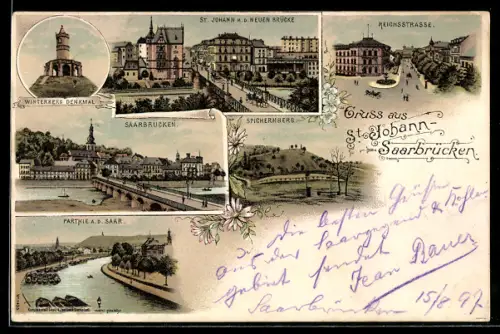 WINTERBERG DENKMAL
ST. JOHANN A. D. NEUEN BRÜCKE
REICHSSTRASSE.
SAARBRÜCKEN
SPICHERNBERG
Gruss aus
St. Johann-
Saarbrücken
PARTHIE A. D. SAAR.
Die besten Grüße
aus der Saargegend &
gebiet sendet
Jean Bauer
Saarbrücken 15/8 97